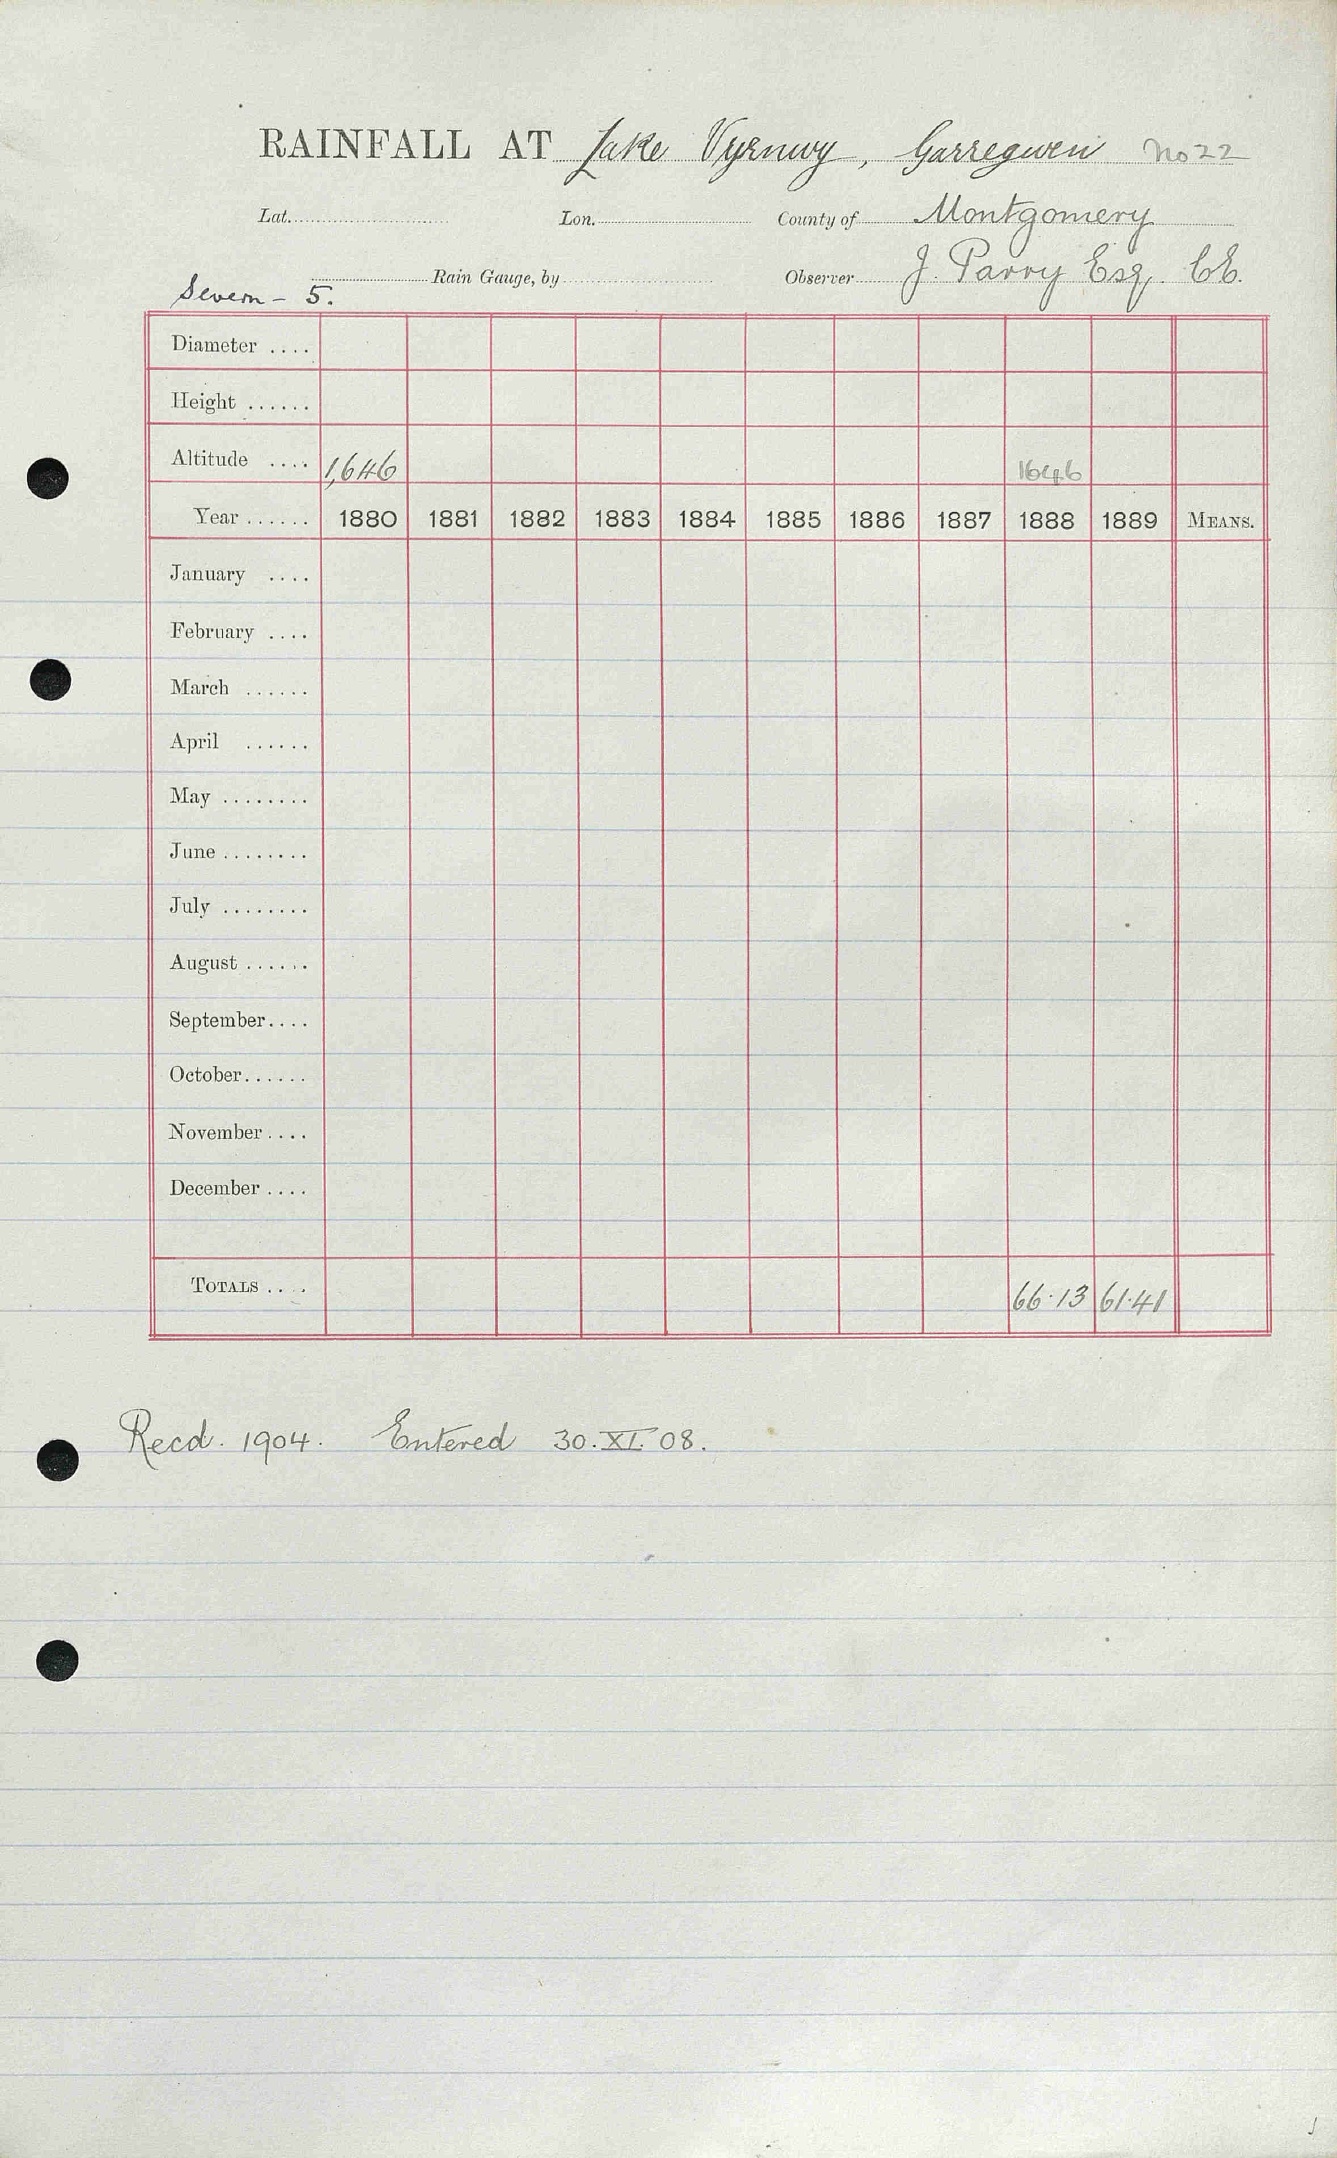 RAINFALL AT Lake Vyrnwy, Garregwen No 22
Lat. Lon. County of Montgomery
Rain Gauge, by Observer J. Parry Esq. C.E.
Severn - 5.
Diameter ....
Height ......
Altitude .... 1,646 1646
Year ...... 1880 1881 1882 1883 1884 1885 1886 1887 1888 1889 MEANS.
January ....
February ....
March ......
April ......
May ........
June ........
July ........
August ......
September....
October......
November ....
December ....
TOTALS .... 66.13 61.41
Recd. 1904. Entered 30.XI.08.